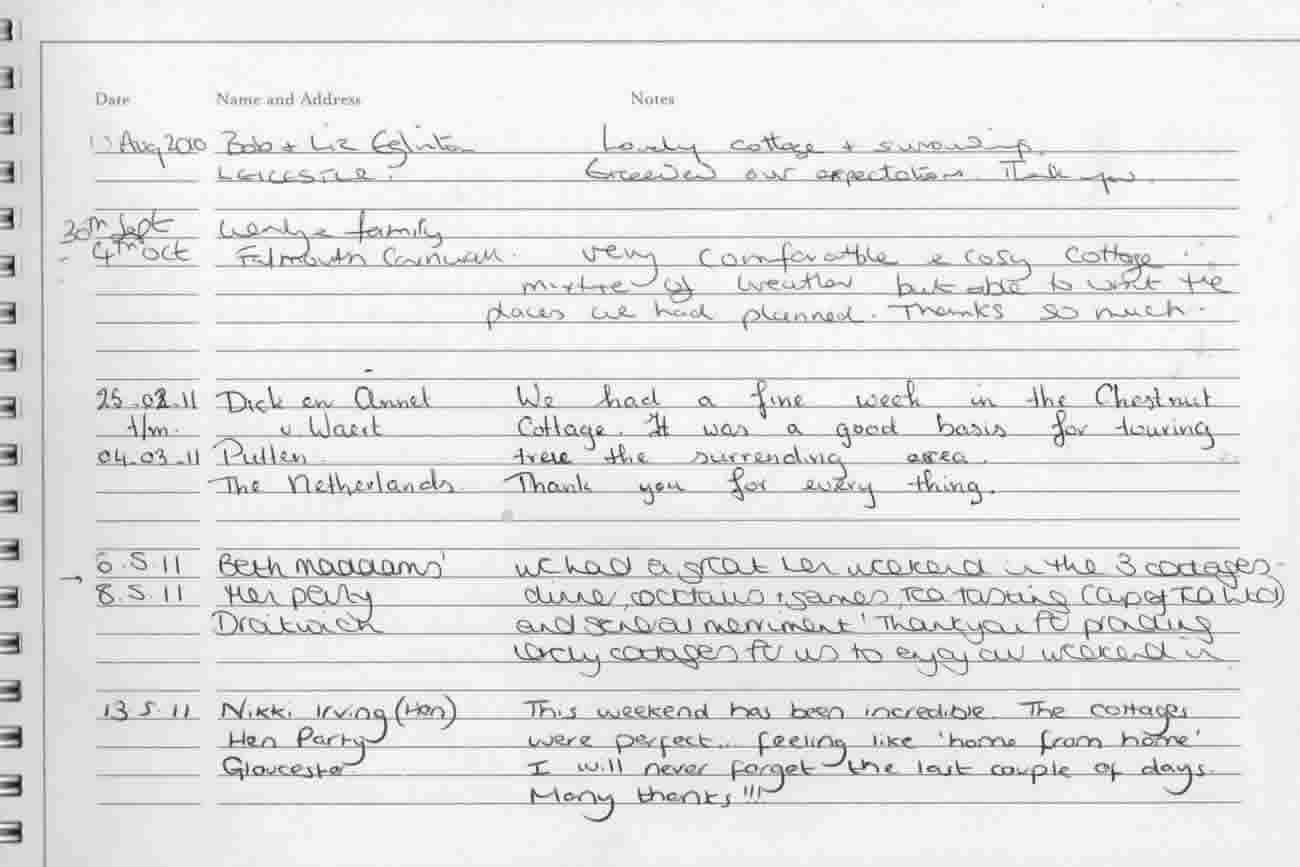 Date Name and Address Notes
Aug 2010 Bob + Liz Eglinton Lovely cottage + surroundings.
LEICESTER. Exceeded our expectations. Thank you.
30th Sept family
4th Oct Falmouth Cornwall. very comfortable & cosy cottage.
mixture of weather but able to visit the
places we had planned. Thanks so much.
25.02.11 Dick en Annet We had a fine week in the Chestnut
t/m. v. Waert Cottage. It was a good basis for touring
04.03.11 Putten. the surrending area.
The Netherlands. Thank you for every thing.
6.5.11 Beth maddams' We had a great hen weekend in the 3 cottages -
→ 8.5.11 Hen party cocktails, games, tea tasting (cup of TEA Ltd)
Droitwich and general merriment! Thankyou for providing
lovely cottages for us to enjoy our weekend in.
13.5.11 Nikki Irving (Hen) This weekend has been incredible. The cottages
Hen Party were perfect... feeling like 'home from home'
Gloucester I will never forget the last couple of days.
Many thanks!!!